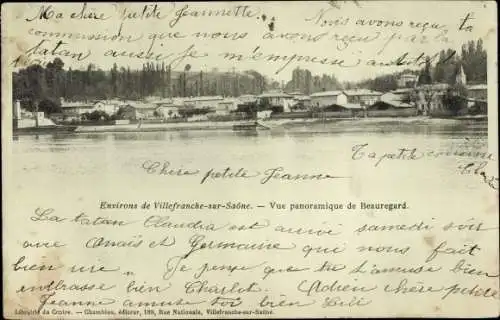 Ma chère petite Jeannette
Nous avons reçu ta
commission que nous avons reçu par la
tatan aussi je m'empresse
Ta petite cousine
Lili
Chère petite Jeanne
Environs de Villefranche-sur-Saône. — Vue panoramique de Beauregard.
La tatan Claudia est arrivé samedi soir
avec Anaïs et Germaine que nous fait
bien rire. Je pense que ta t'amuse bien
embrasse bien Charlot. Adieu chère petite
Jeanne amuse toi bien Lili
Librairie du Centre. — Chambion, éditeur, 108, Rue Nationale, Villefranche-sur-Saône.